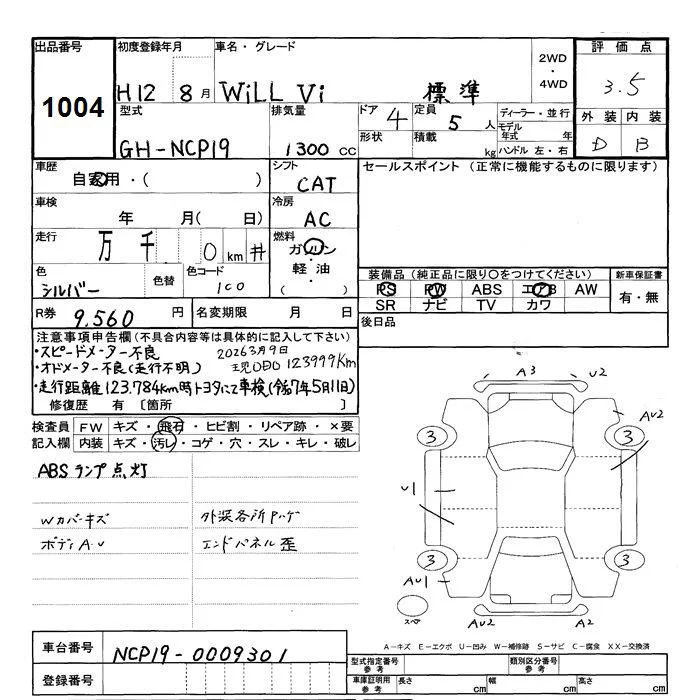 出品番号 初度登録年月 車名・グレード 2WD・4WD 評価点
1004 H12 8月 WiLL Vi 標準 3.5
型式 排気量 ドア 4 定員 5人 ディーラー・並行 外装 内装
GH-NCP19 1300cc 形状 積載 kg モデル年式 年 ハンドル 左・右 D B
車歴 自家用・( ) シフト CAT セールスポイント (正常に機能するものに限ります)
車検 年 月( 日) 冷房 AC
走行 万 千 0 km # 燃料 ガソリン・軽油 ( )
色 シルバー 色替 色コード 1C0 装備品 (純正品に限り○をつけてください) 新車保証書
PS PW ABS エアB AW 有・無
SR ナビ TV カワ
R券 9,560円 名変期限 月 日 後日品
注意事項申告欄 (不具合内容等は具体的に記入して下さい)
・スピードメーター不良 2026 3月9日
・オドメーター不良(走行不明) 現ODO 123999Km
・走行距離123,784km時トヨタにて車検(令和7年5月11日)
修復歴 有 〔箇所 〕
検査員 FW キズ・飛石・ヒビ割・リペア跡・×要
記入欄 内装 キズ・汚レ・コゲ・穴・スレ・キレ・破レ
ABSランプ点灯
Wカバーキズ 外装各所Pハゲ
ボディA・U エンドパネル歪
A3 U2
AU2
3 3
U1
3 3
AU1
スペア AU2 A2
A-キズ E-エクボ U-凹み W-補修跡 S-サビ C-腐食 XX-交換済
車台番号 NCP19-0009301
登録番号
型式指定番号 参考 類別区分番号 参考
車庫証明用 参考 長さ cm 幅 cm 高さ cm